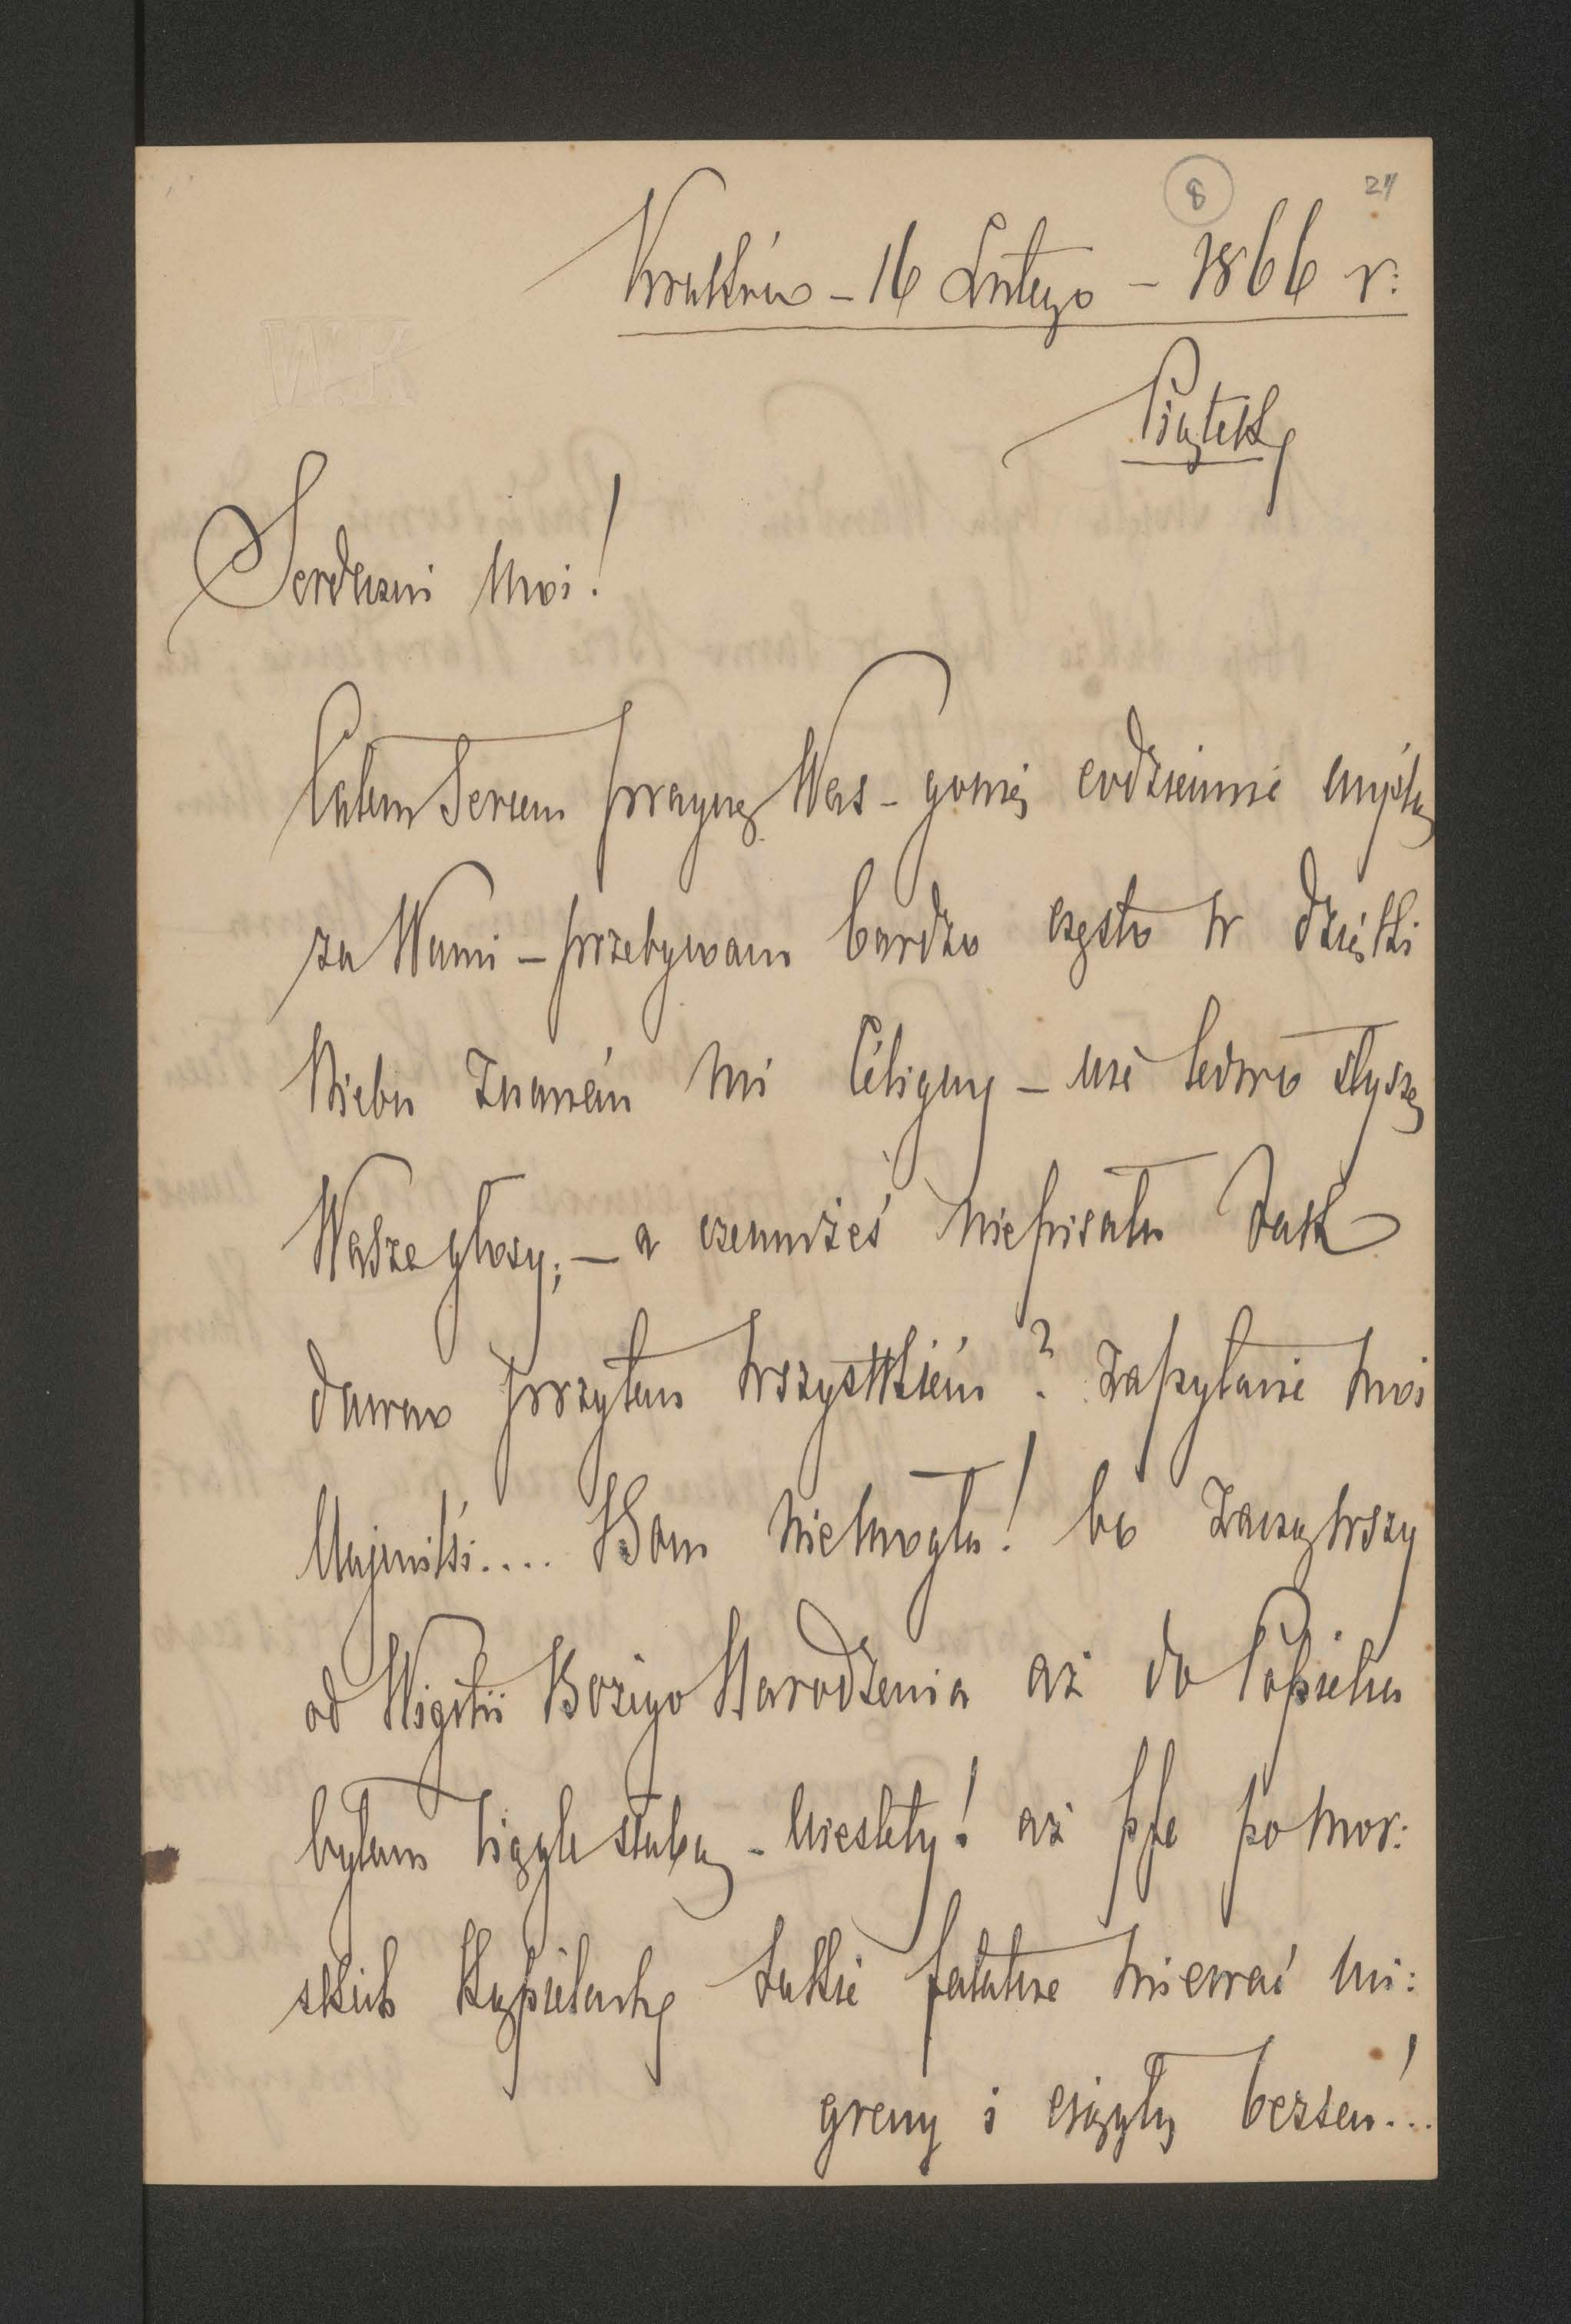 8
24
Kraków – 16 Lutego – 1866 r:
Piątek
Serdeczni Moi!
Całem Sercem pragnę Was – gonię codziennie myślą
za Wami – przebywam bardzo często w dzięki
Niebu Znaném Mi Céligny – nie ledwo słyszę
Wasze głosy; – a czemużeś niepisała Tak
dawno przytem wszystkiém? Zapytanie Moi
Mujmilsi.... Bom Niemogła! bo Zacząwszy
od Wigilii Bożego Narodzenia aż do Popielca
byłam ciągle słabą – Niestety! aż pfe po mor:
skich Kąpielach takie fatalne miewać mi:
greny i ciągły bezsen!..